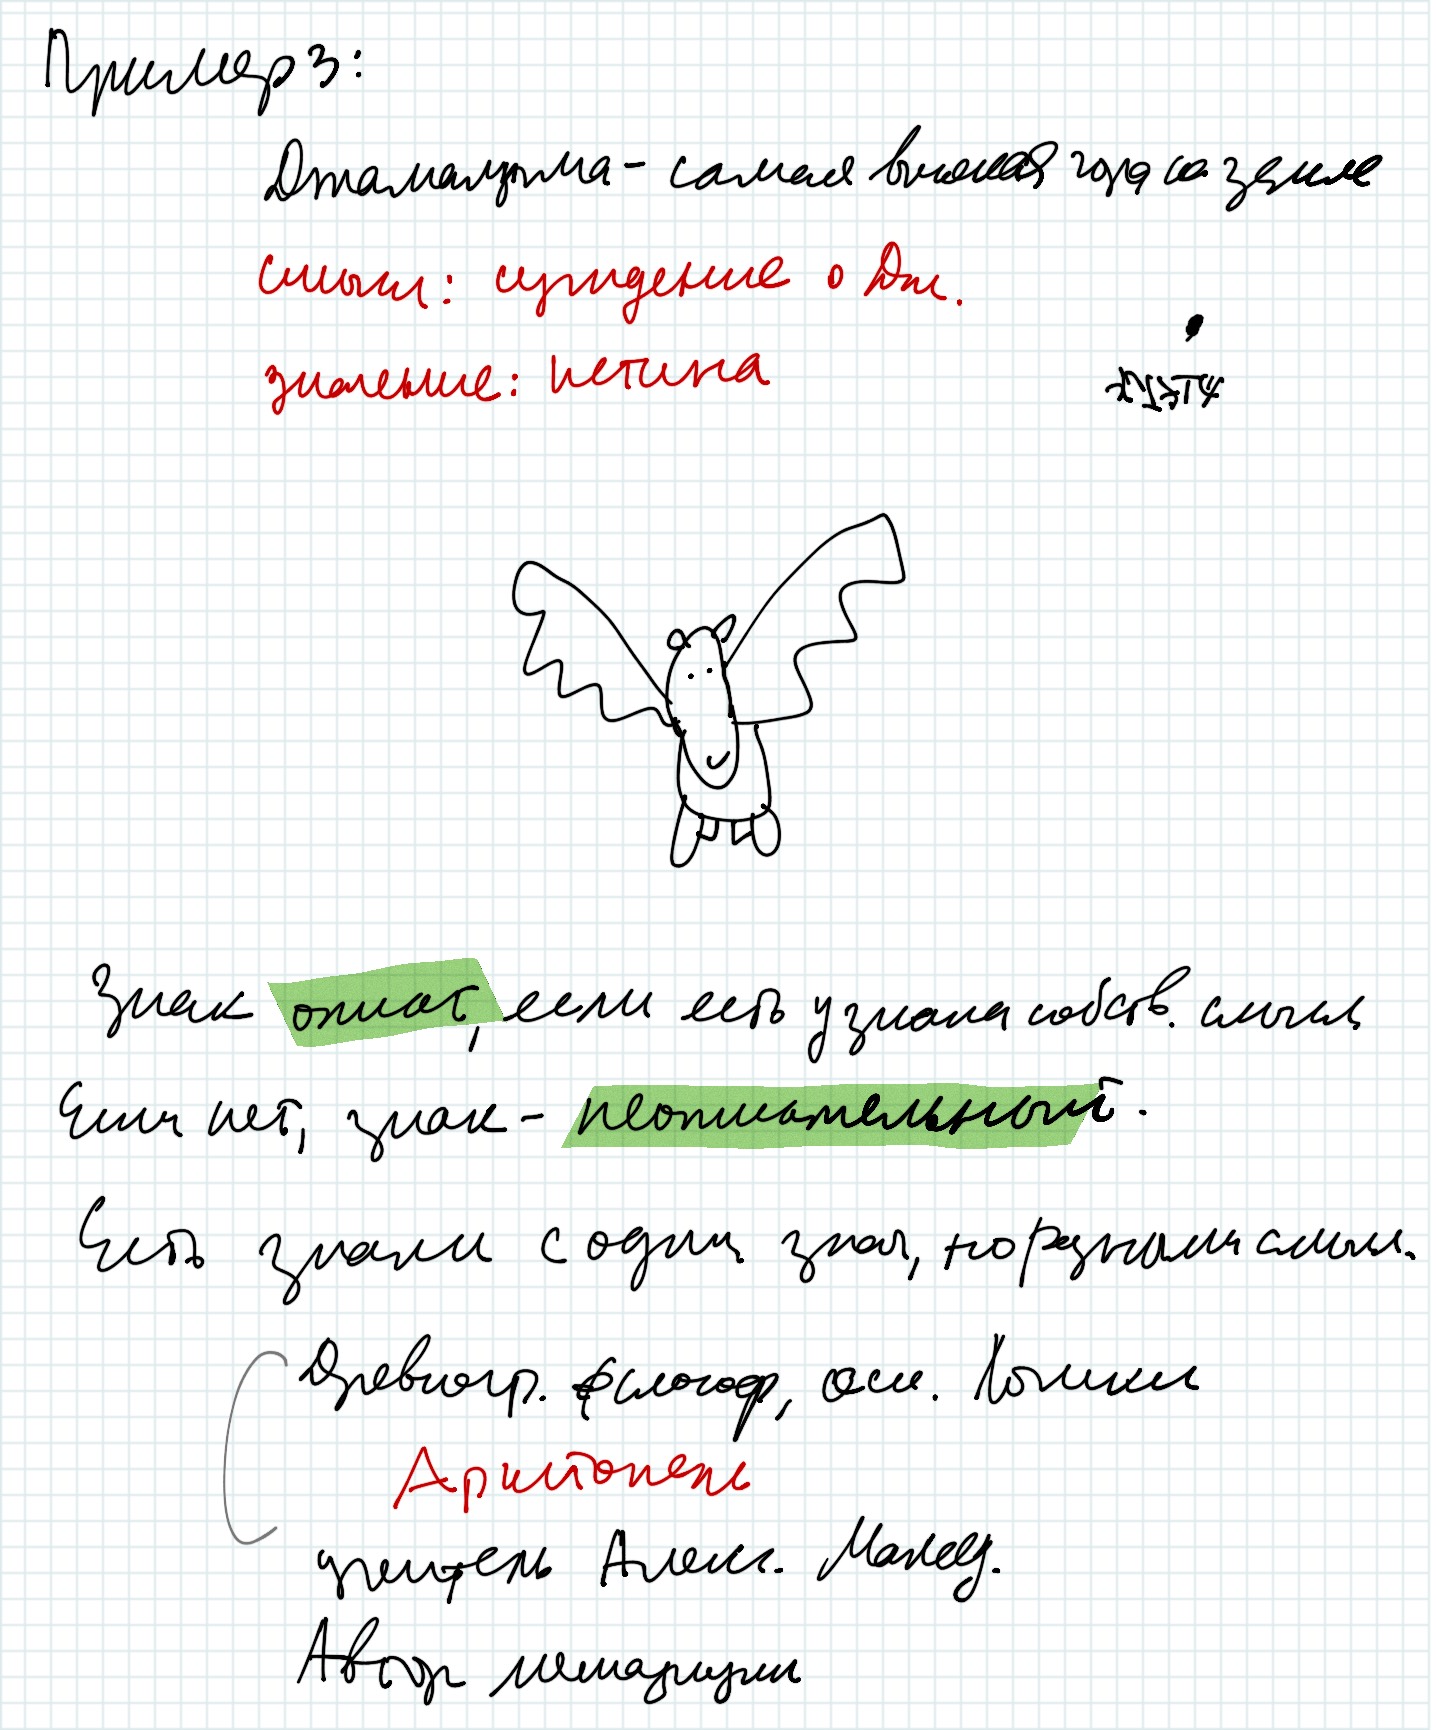 Пример 3:
Джамалунгма - самая высокая гора на земле
смысл: суждение о Дж.
значение: истина
Знак описат, если есть у знака собств. смысл
Если нет, знак - неописательный.
Есть знаки с одним знач, но разными смысл.
Древнегр. философ, осн. Логики
Аристотель
учитель Алекс. Макед.
Автор